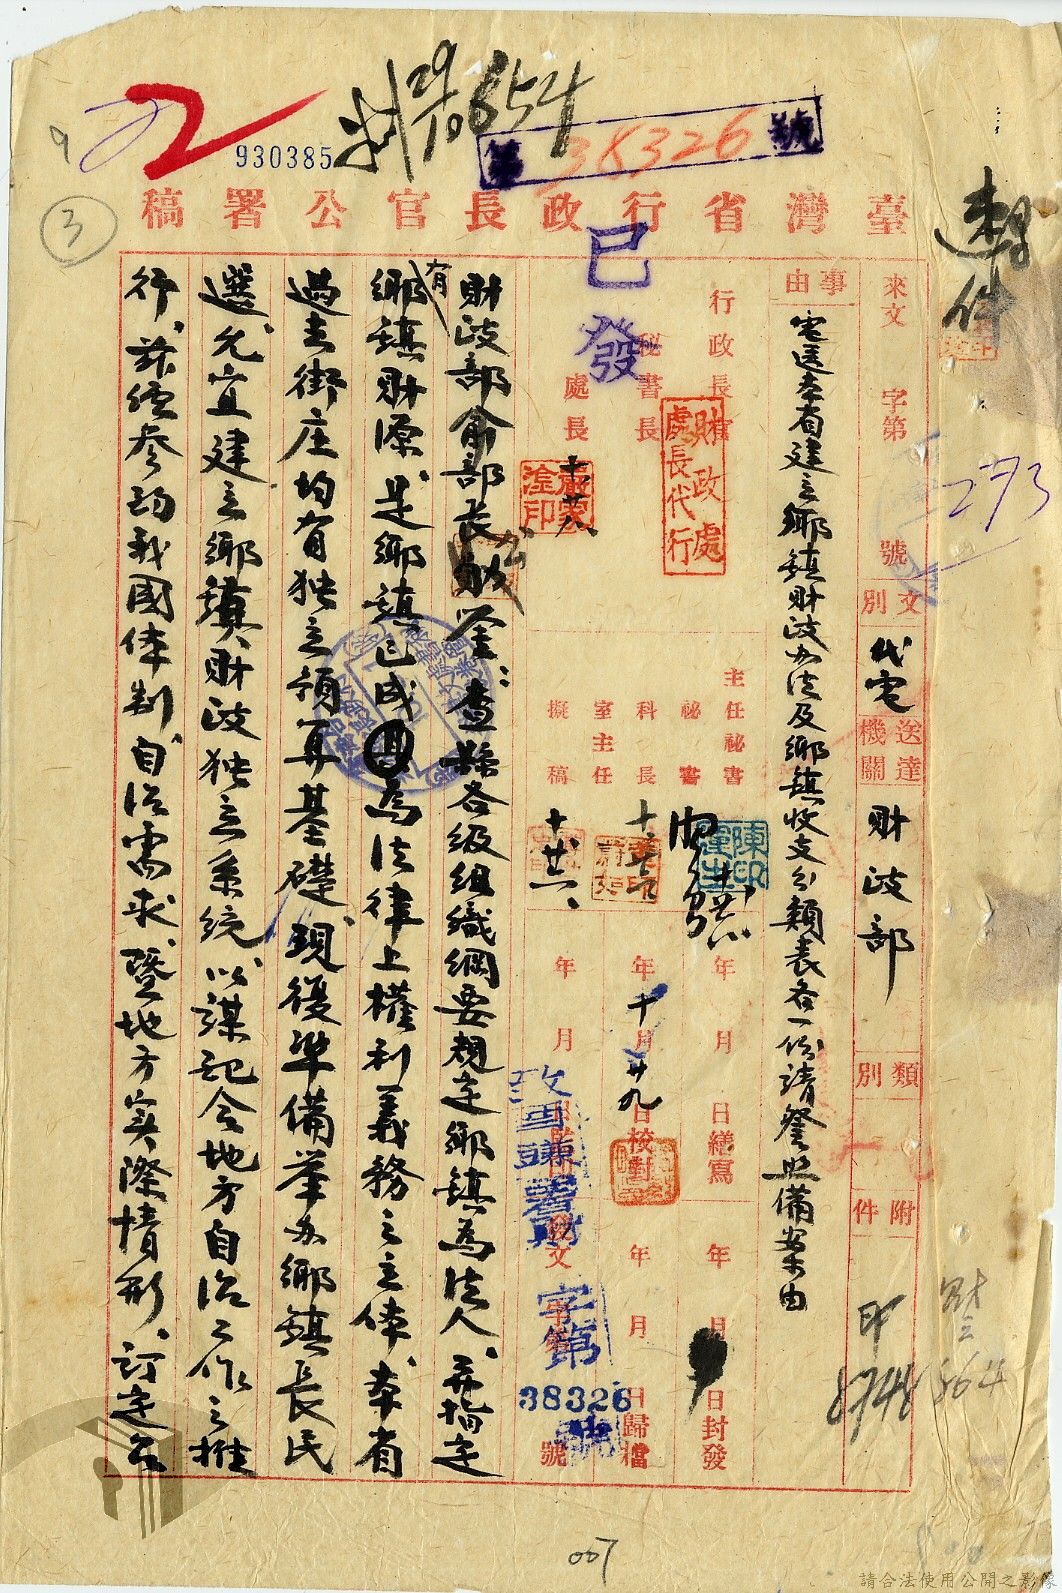 930385
第38326號
財 29/10 654
2
9
3
臺灣省行政長官公署稿
速件
273
來文 字第 號
文別 代電
送達機關 財政部
類別
附件
印
8748
財三
864
事由
電送本省建立鄉鎮財政办法及鄉鎮收支分類表各一份請詧照備案由
行政長官
秘書長
處長
已發
財政處處長代行
主任秘書
秘書
科長
室主任
擬稿
年 月 日繕寫
年十月廿九日校對
年 月 日
年 月 日封發
年 月 日歸檔
致酉 署財
字第
38326
號
財政部俞部長勛鑒：查縣各級組織綱要規定鄉鎮為法人、並指定
有
鄉鎮財源、是鄉鎮已成為法律上權利義務之主体、本省
過去街庄均有独立預算基礎、現復準備举办鄉鎮長民
選、允宜建立鄉鎮財政独立系統、以謀配合地方自治工作之推
行、茲經參酌我國体制、自治需求、暨地方实際情形、訂定台
007
請合法使用公開之影像